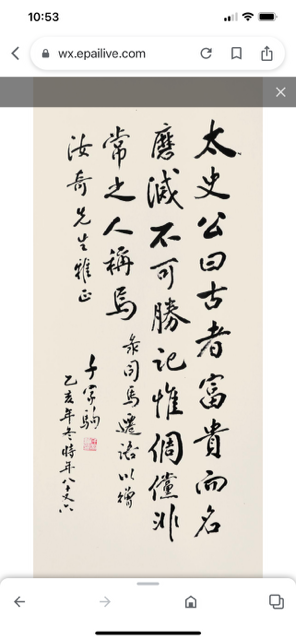 10:53
wx.epailive.com
太史公曰古者富貴而名
磨滅不可勝記惟倜儻非
常之人稱焉
录司馬遷語以贈
汝奇先生雅正
千家駒
乙亥年冬時年八十又六